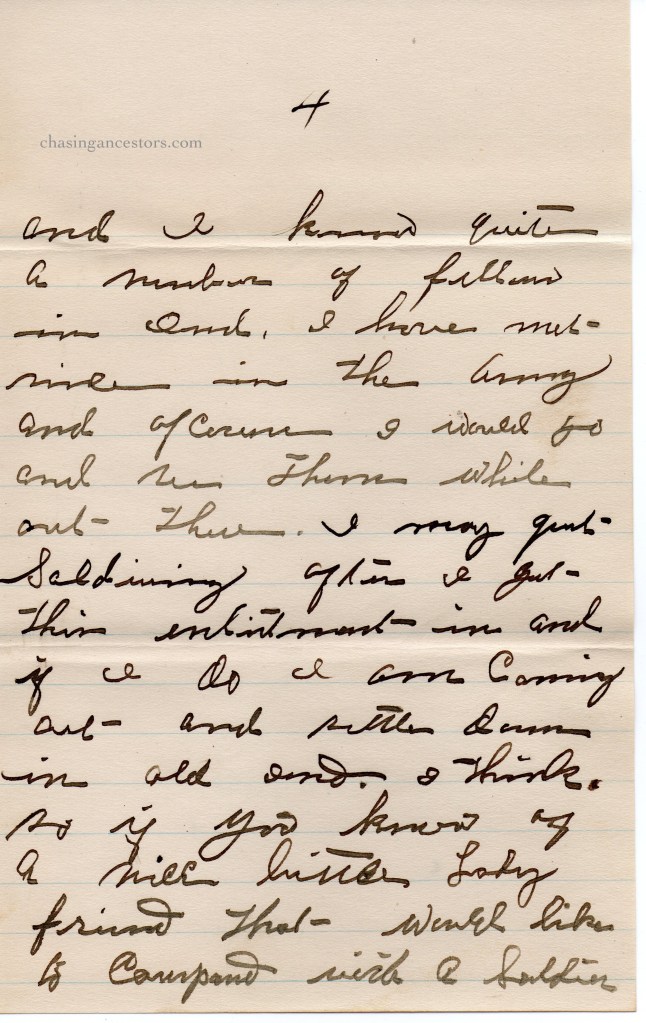 4
chasingancestors.com
and I know quite
a number of fellows
in Ind. I have met
since in the Army
and of course I would go
and see them while
out there. I may quit
Soldiering after I get
this enlistment in and
if I do I am Coming
out and settle down
in old Ind. I think.
so if you know of
a nice little Lady
friend that would like
to Courspond with a Soldier